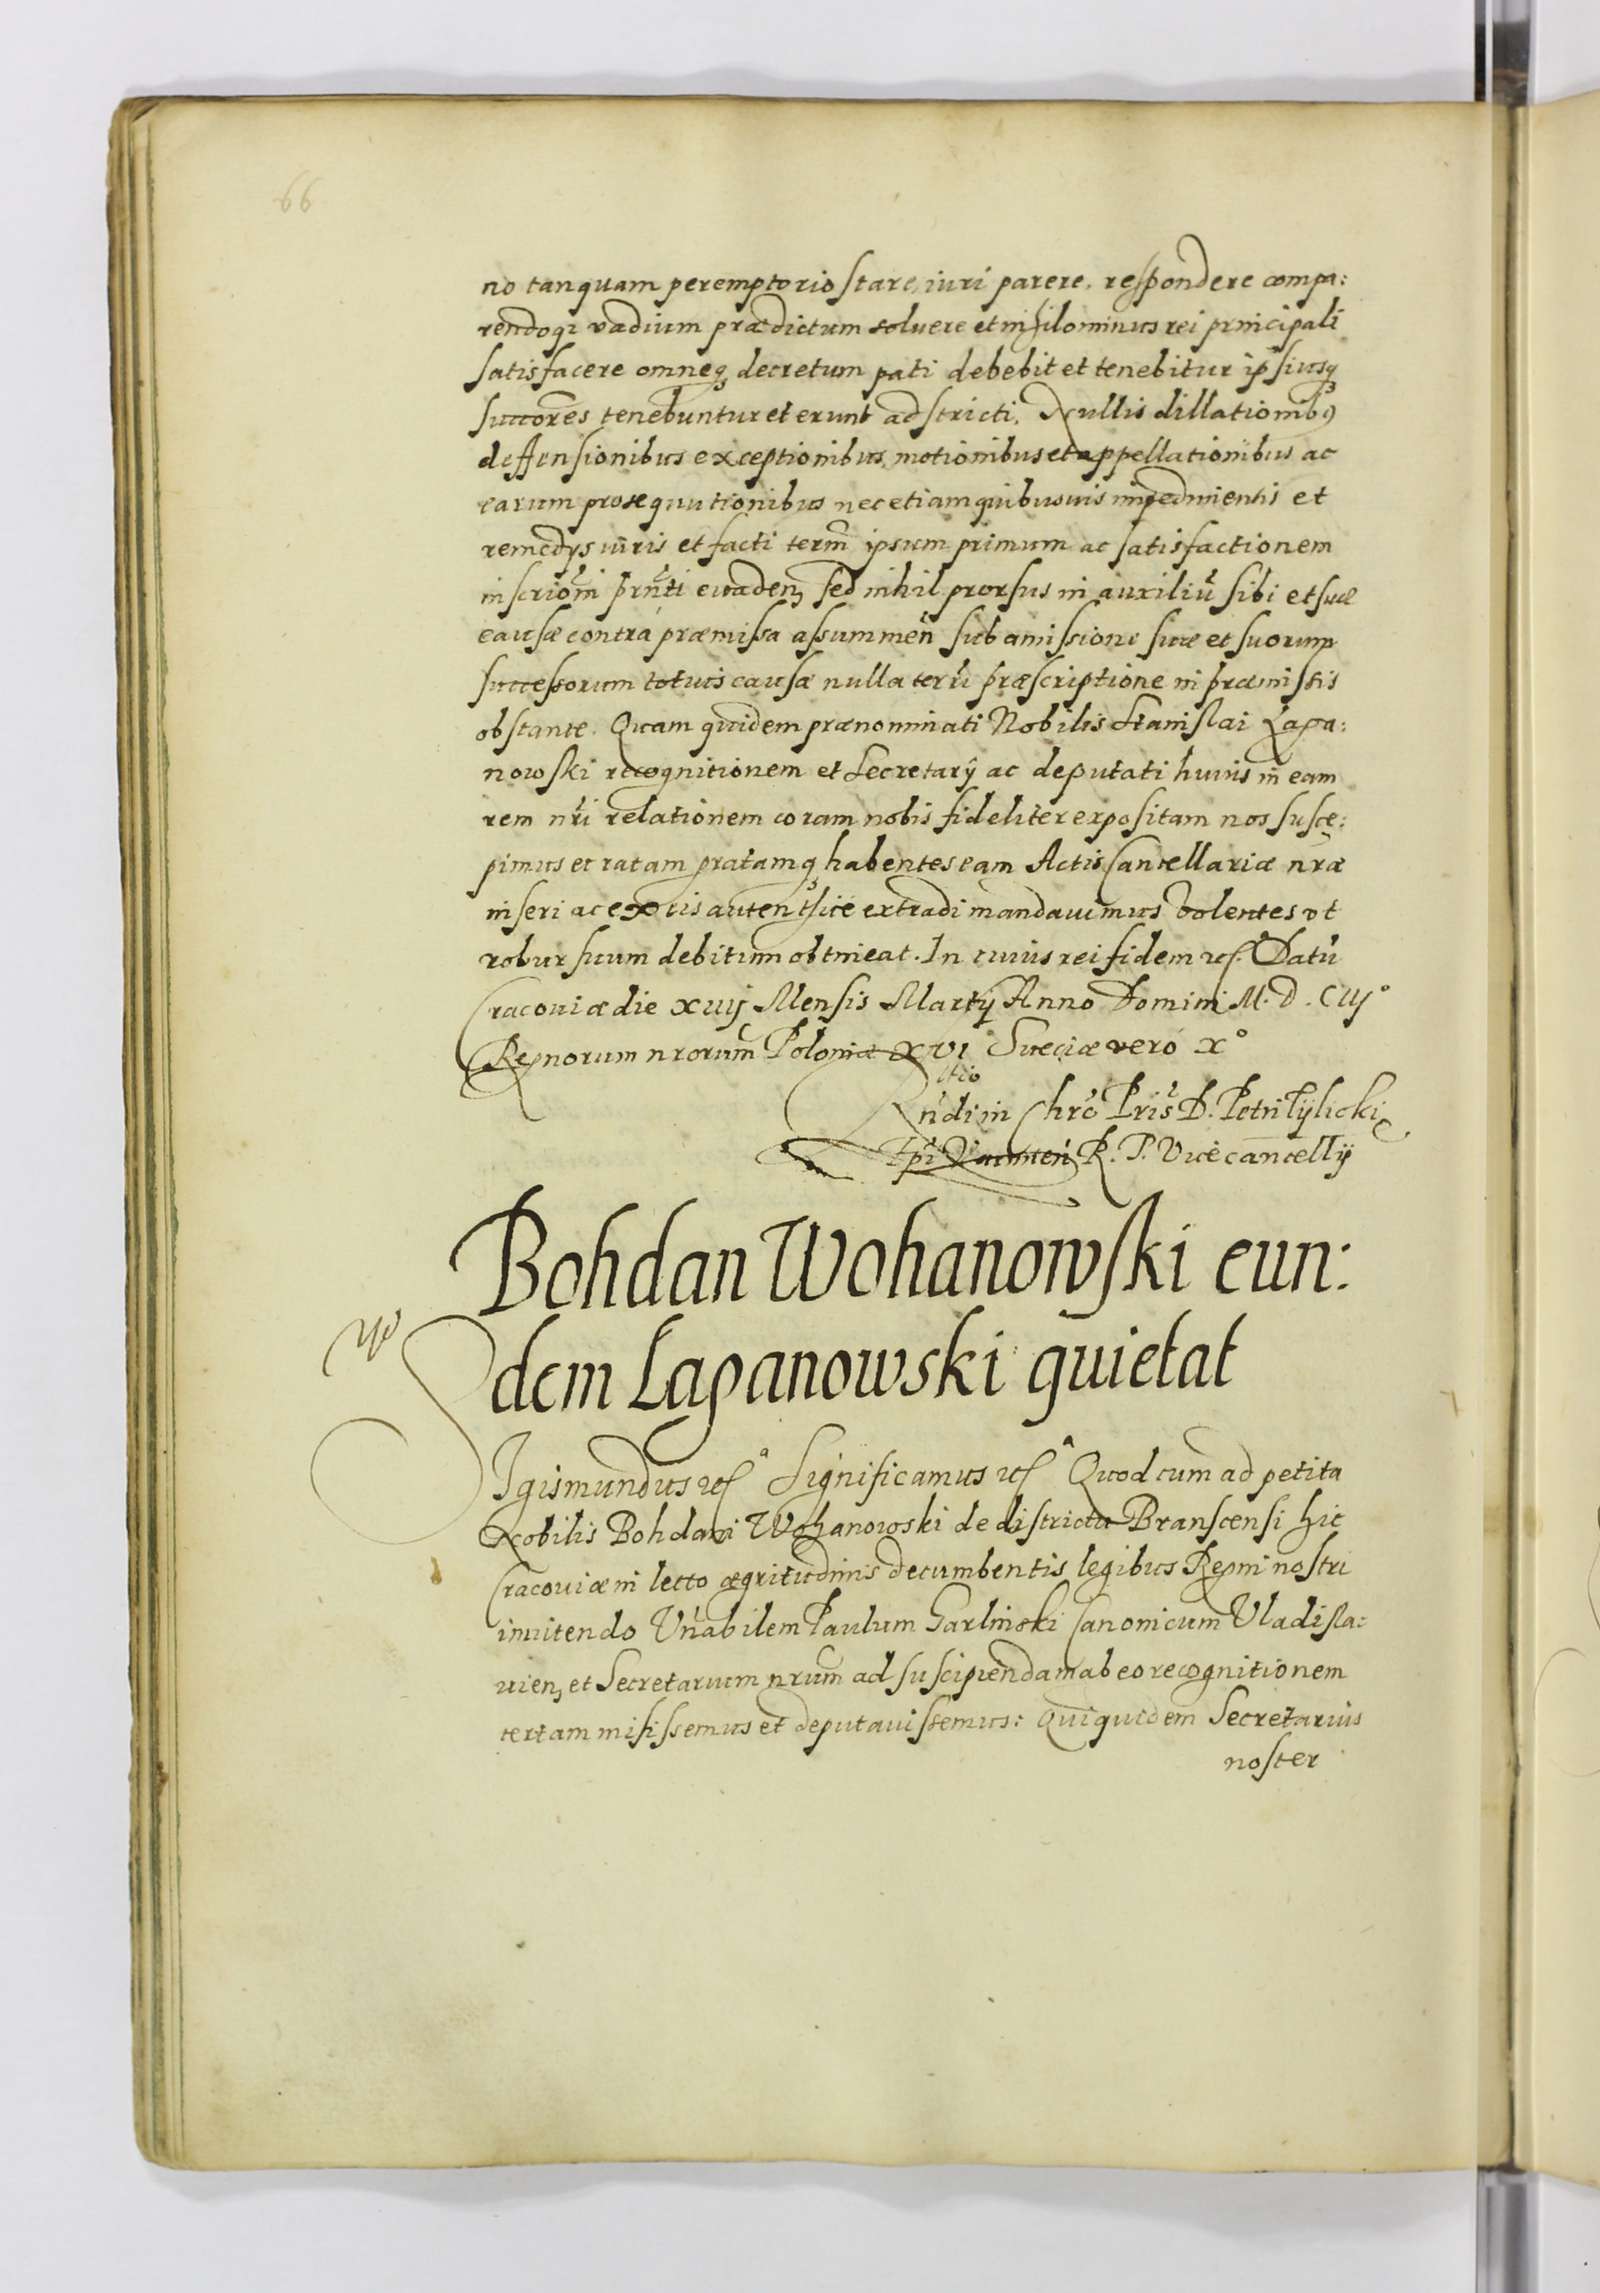 66
no tanquam peremptorio stare, iuri parere, respondere compa:
rendoq3 vadium prædictum soluere et nihilominus rei principali
satisfacere omneq3 decretum pati debebit et tenebitur ipsiusq3
succores tenebuntur et erunt adstricti. Nullis dillationib9
deffensionibus exceptionibus, motionibus et appellationibus ac
earum prosequutionibus nec etiam quibusuis impedimentis et
remedys iuris et facti termī ipsum primum ac satisfactionem
inscrioni prnti euaden3 sed nihil prorsus in auxiliū sibi et suæ
causæ contra præmissa assummen̄ sub amissione suæ et suorum
successorum totius causæ nulla terrū præscriptione in præmissis
obstante. Quam quidem prænominati Nobilis Stanislai Łapa:
nowski recognitionem et Secretarÿ ac deputati huius in eam
rem nri relationem coram nobis fideliter expositam nos susce:
pimus et ratam gratamq3 habentes eam Actis Cancellariæ nræ
inseri ac ex iis autenthice extradi mandauimus volentes vt
robur suum debitum obtineat. In cuius rei fidem etc. Datū
Cracouiæ die xvij Mensis Martij Anno Domini M.D.CIIJ°
Regnorum nrorum Poloniæ XVI Sueciæ vero x°
Rndi in Chro Pris D. Petri Tÿlicki
Epi Varmien̄ R. P. Vicecancellÿ
Bohdan Wohanowski eun:
dem Łapanowski quietat
Sigismundus etc. Significamus etc. Quod cum ad petita
Nobilis Bohdani Wohanowski de districtu Branscensi hic
Cracouiæ in lecto ægritudinis decumbentis legibus Regni nostri
innitendo Vnabilem Paulum Garlinski Canonicum Vladisla:
uien3 et Secretarium nrum ad suscipiendam ab eo recognitionem
certam misissemus et deputauissemus: Qui quidem Secretarius
noster